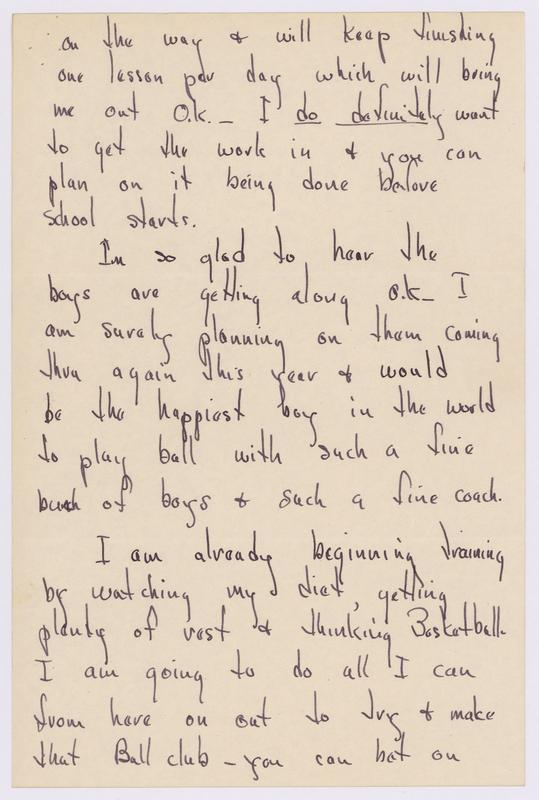 on the way & will keep finishing
one lesson per day which will bring
me out O.k. _ I do definitely want
to get the work in & you can
plan on it being done before
school starts.
I'm so glad to hear the
boys are getting along o.k_ I
am surely planning on them coming
thru again this year & would
be the happiest boy in the world
to play ball with such a fine
bunch of boys & such a fine coach.
I am already beginning training
by watching my diet, getting
plenty of rest & thinking Basketball.
I am going to do all I can
from here on out to try & make
that Ball club _ you can bet on